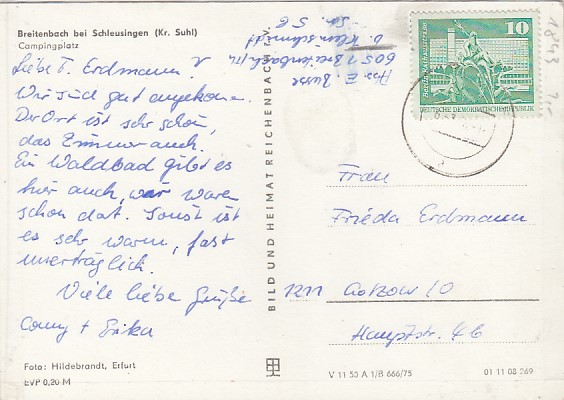 Breitenbach bei Schleusingen (Kr. Suhl)
Campingplatz
Liebe F. Erdmann!
Wir sind gut angekomen.
Der Ort ist sehr schön,
das Zimmer auch.
Ein Waldbad gibt es
hier auch, wir waren
schon dat. Sonst ist
es sehr warm, fast
unerträglich.
Viele liebe Grüße
Conny + Erika
Foto: Hildebrandt, Erfurt
EVP 0,20 M
Abs. E. Busse
6051 Breitenbach/Th.
b. Kleinschmidt
BILD UND HEIMAT REICHENBACH I. V.
10
DEUTSCHE DEMOKRATISCHE REPUBLIK
Frau
Frieda Erdmann
1211 Golzow/O
Hauptstr. 46
V 11 50 A 1/B 666/75
01 11 08 269